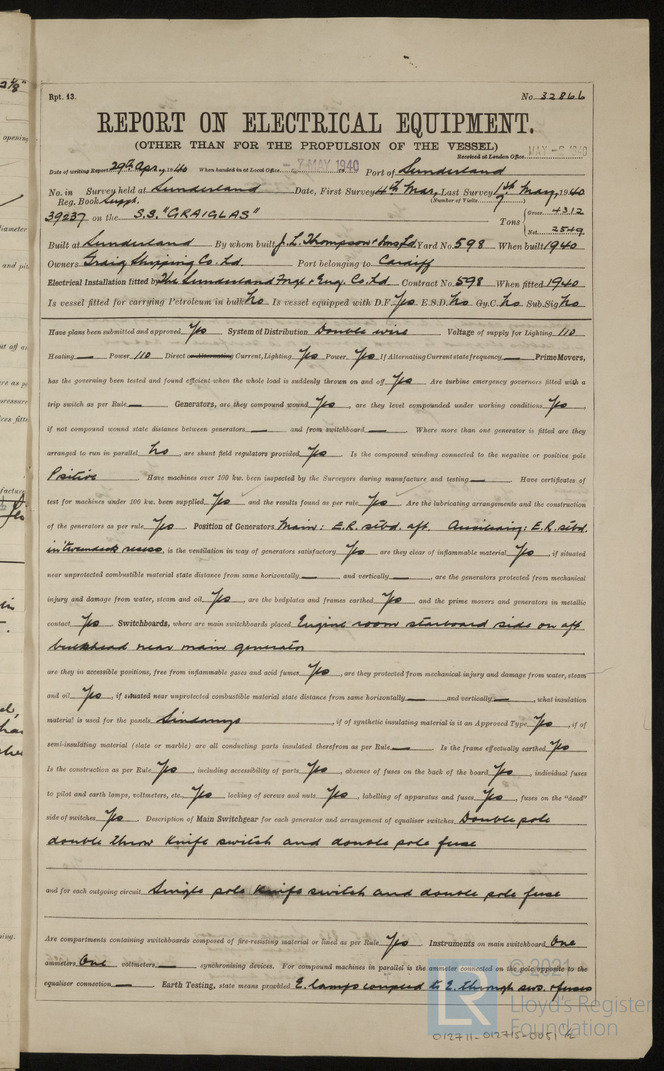 Rpt. 13.
No. 32866
REPORT ON ELECTRICAL EQUIPMENT.
(OTHER THAN FOR THE PROPULSION OF THE VESSEL)
Received at London Office MAY -8 1940
Date of writing Report 29th Apr, 1940 When handed in at Local Office -3 MAY 1940 Port of Sunderland
No. in Survey held at Sunderland Date, First Survey 4th Mar, Last Survey 1st May, 1940
Reg. Book. Suppt. (Number of Visits 7)
39237 on the S.S. "GRAIGLAS" Tons Gross 4312
Net 2549
Built at Sunderland By whom built J. L. Thompson & Sons Ld. Yard No. 598 When built 1940
Owners Graig Shipping Co. Ld. Port belonging to Cardiff
Electrical Installation fitted by The Sunderland Forge & Eng. Co. Ld Contract No. 598 When fitted 1940
Is vessel fitted for carrying Petroleum in bulk No Is vessel equipped with D.F. Yes E.S.D. No Gy.C. No Sub.Sig. No
Have plans been submitted and approved Yes System of Distribution Double wire Voltage of supply for Lighting 110
Heating — Power 110 Direct or Alternating Current, Lighting Yes Power Yes If Alternating Current state frequency — Prime Movers,
has the governing been tested and found efficient when the whole load is suddenly thrown on and off Yes Are turbine emergency governors fitted with a
trip switch as per Rule — Generators, are they compound wound Yes, are they level compounded under working conditions Yes,
if not compound wound state distance between generators — and from switchboard — Where more than one generator is fitted are they
arranged to run in parallel No, are shunt field regulators provided Yes Is the compound winding connected to the negative or positive pole
Positive Have machines over 100 kw. been inspected by the Surveyors during manufacture and testing — Have certificates of
test for machines under 100 kw. been supplied Yes and the results found as per rule Yes Are the lubricating arrangements and the construction
of the generators as per rule Yes Position of Generators Main: E.R. stbd. aft. Auxiliary: E.R. stbd.
in 'tweendeck recess, is the ventilation in way of generators satisfactory Yes are they clear of inflammable material Yes, if situated
near unprotected combustible material state distance from same horizontally — and vertically —, are the generators protected from mechanical
injury and damage from water, steam and oil Yes, are the bedplates and frames earthed Yes and the prime movers and generators in metallic
contact Yes Switchboards, where are main switchboards placed Engine room starboard side on aft
bulkhead near main generator
are they in accessible positions, free from inflammable gases and acid fumes Yes, are they protected from mechanical injury and damage from water, steam
and oil Yes, if situated near unprotected combustible material state distance from same horizontally — and vertically —, what insulation
material is used for the panels Sindanyo, if of synthetic insulating material is it an Approved Type Yes, if of
semi-insulating material (slate or marble) are all conducting parts insulated therefrom as per Rule — Is the frame effectually earthed Yes
Is the construction as per Rule Yes, including accessibility of parts Yes, absence of fuses on the back of the board Yes, individual fuses
to pilot and earth lamps, voltmeters, etc. Yes locking of screws and nuts Yes, labelling of apparatus and fuses Yes, fuses on the "dead"
side of switches Yes Description of Main Switchgear for each generator and arrangement of equaliser switches Double pole
double throw knife switch and double pole fuse
and for each outgoing circuit Single pole knife switch and double pole fuse
Are compartments containing switchboards composed of fire-resisting material or lined as per Rule Yes Instruments on main switchboard One
ammeters One voltmeters — synchronising devices. For compound machines in parallel is the ammeter connected on the pole opposite to the
equaliser connection — Earth Testing, state means provided E. lamps coupled to E. through sws. & fuses
© 2021
LR Lloyd's Register
Foundation
012711-012715-0051 1/2